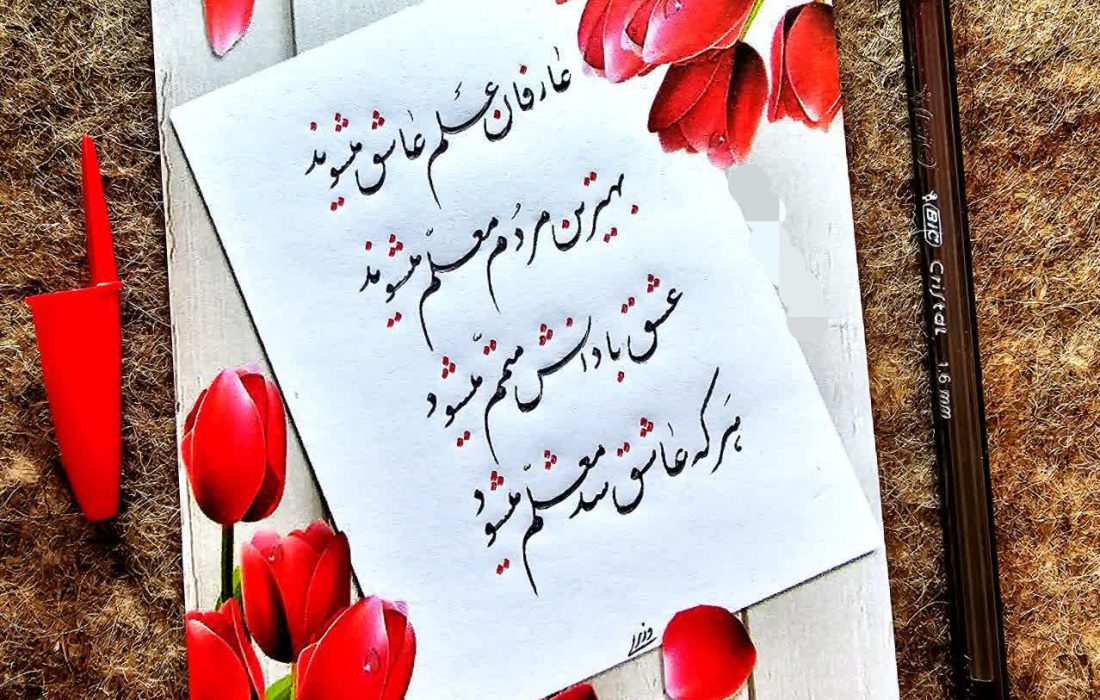 عارفان علم عاشق میشوند
بهترین مردم معلّم میشوند
عشق با دانش متمم میشود
هر که عاشق شد معلّم میشود
BIC Cristal 1.6 mm